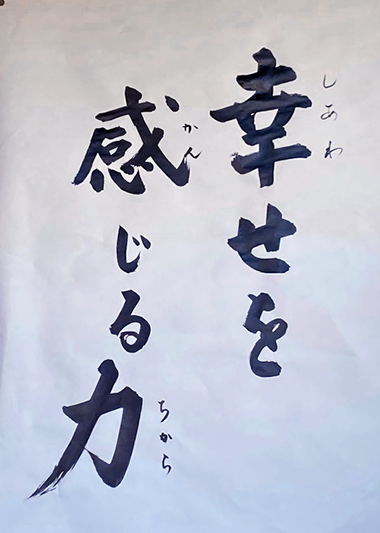 幸せを
しあわ
感じる力
かん
ちから